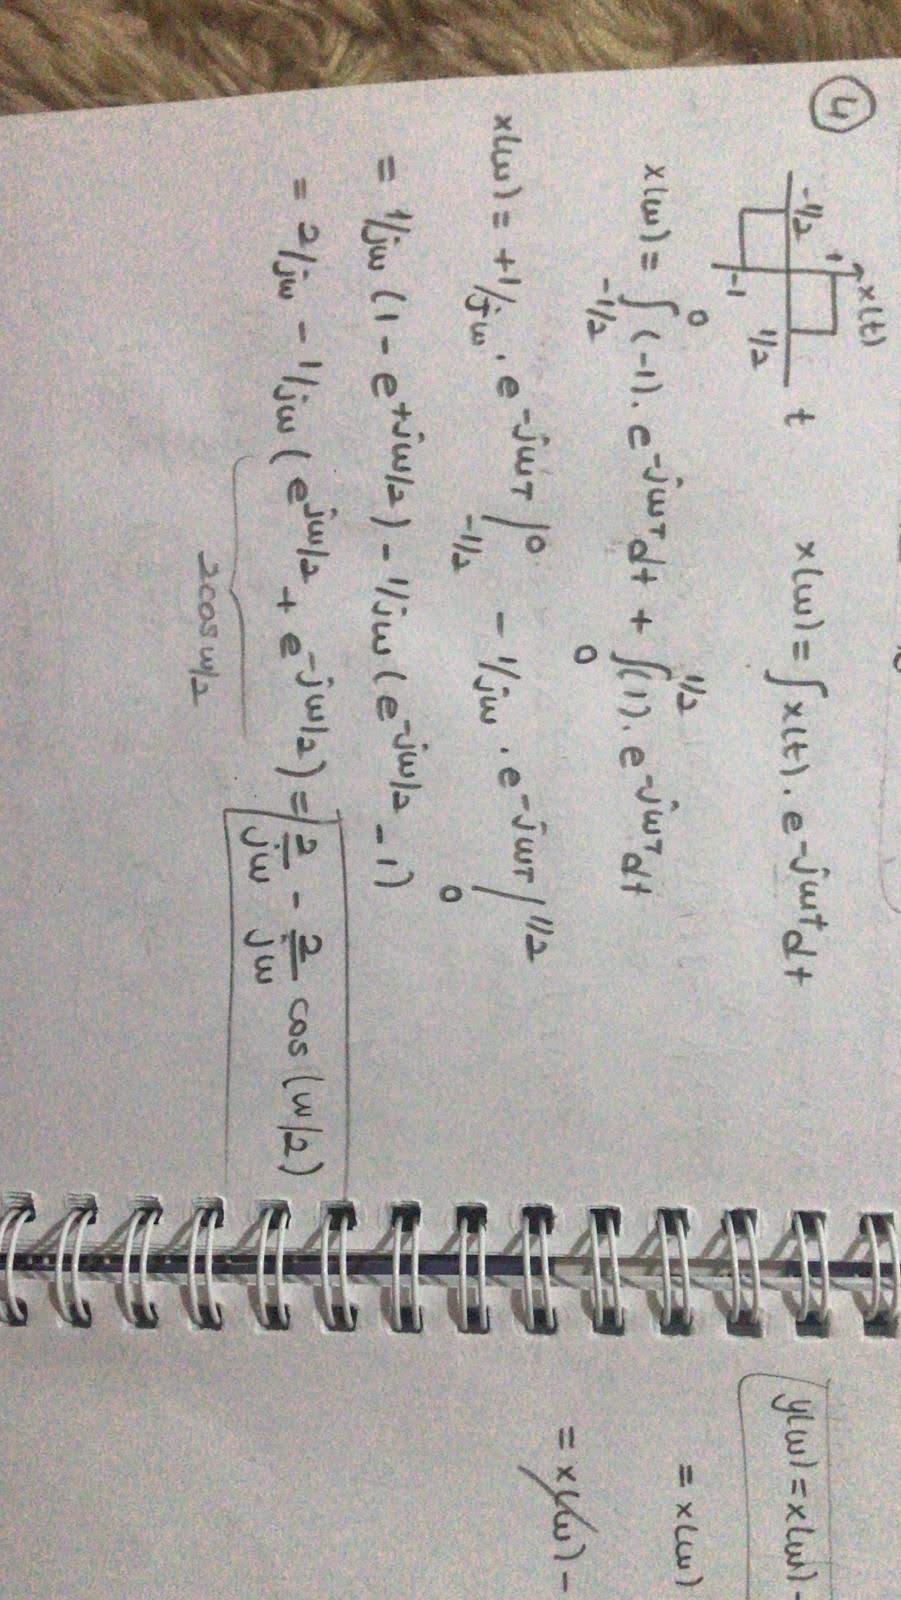 ④
x(t)
1
-1/2
1/2
t
-1
x(ω) = ∫ x(t) . e^-jωt dt
x(ω) = ∫_-1/2^0 (-1) . e^-jωt dt + ∫_0^1/2 (1) . e^-jωt dt
x(ω) = +1/jω . e^-jωt |_-1/2^0 - 1/jω . e^-jωt |_0^1/2
= 1/jω (1 - e^+jω/2) - 1/jω (e^-jω/2 - 1)
= 2/jω - 1/jω (e^jω/2 + e^-jω/2) = 2/jω - 2/jω cos(ω/2)
2cos ω/2
y(ω) = x(ω) -
= x(ω)
= x(ω) -